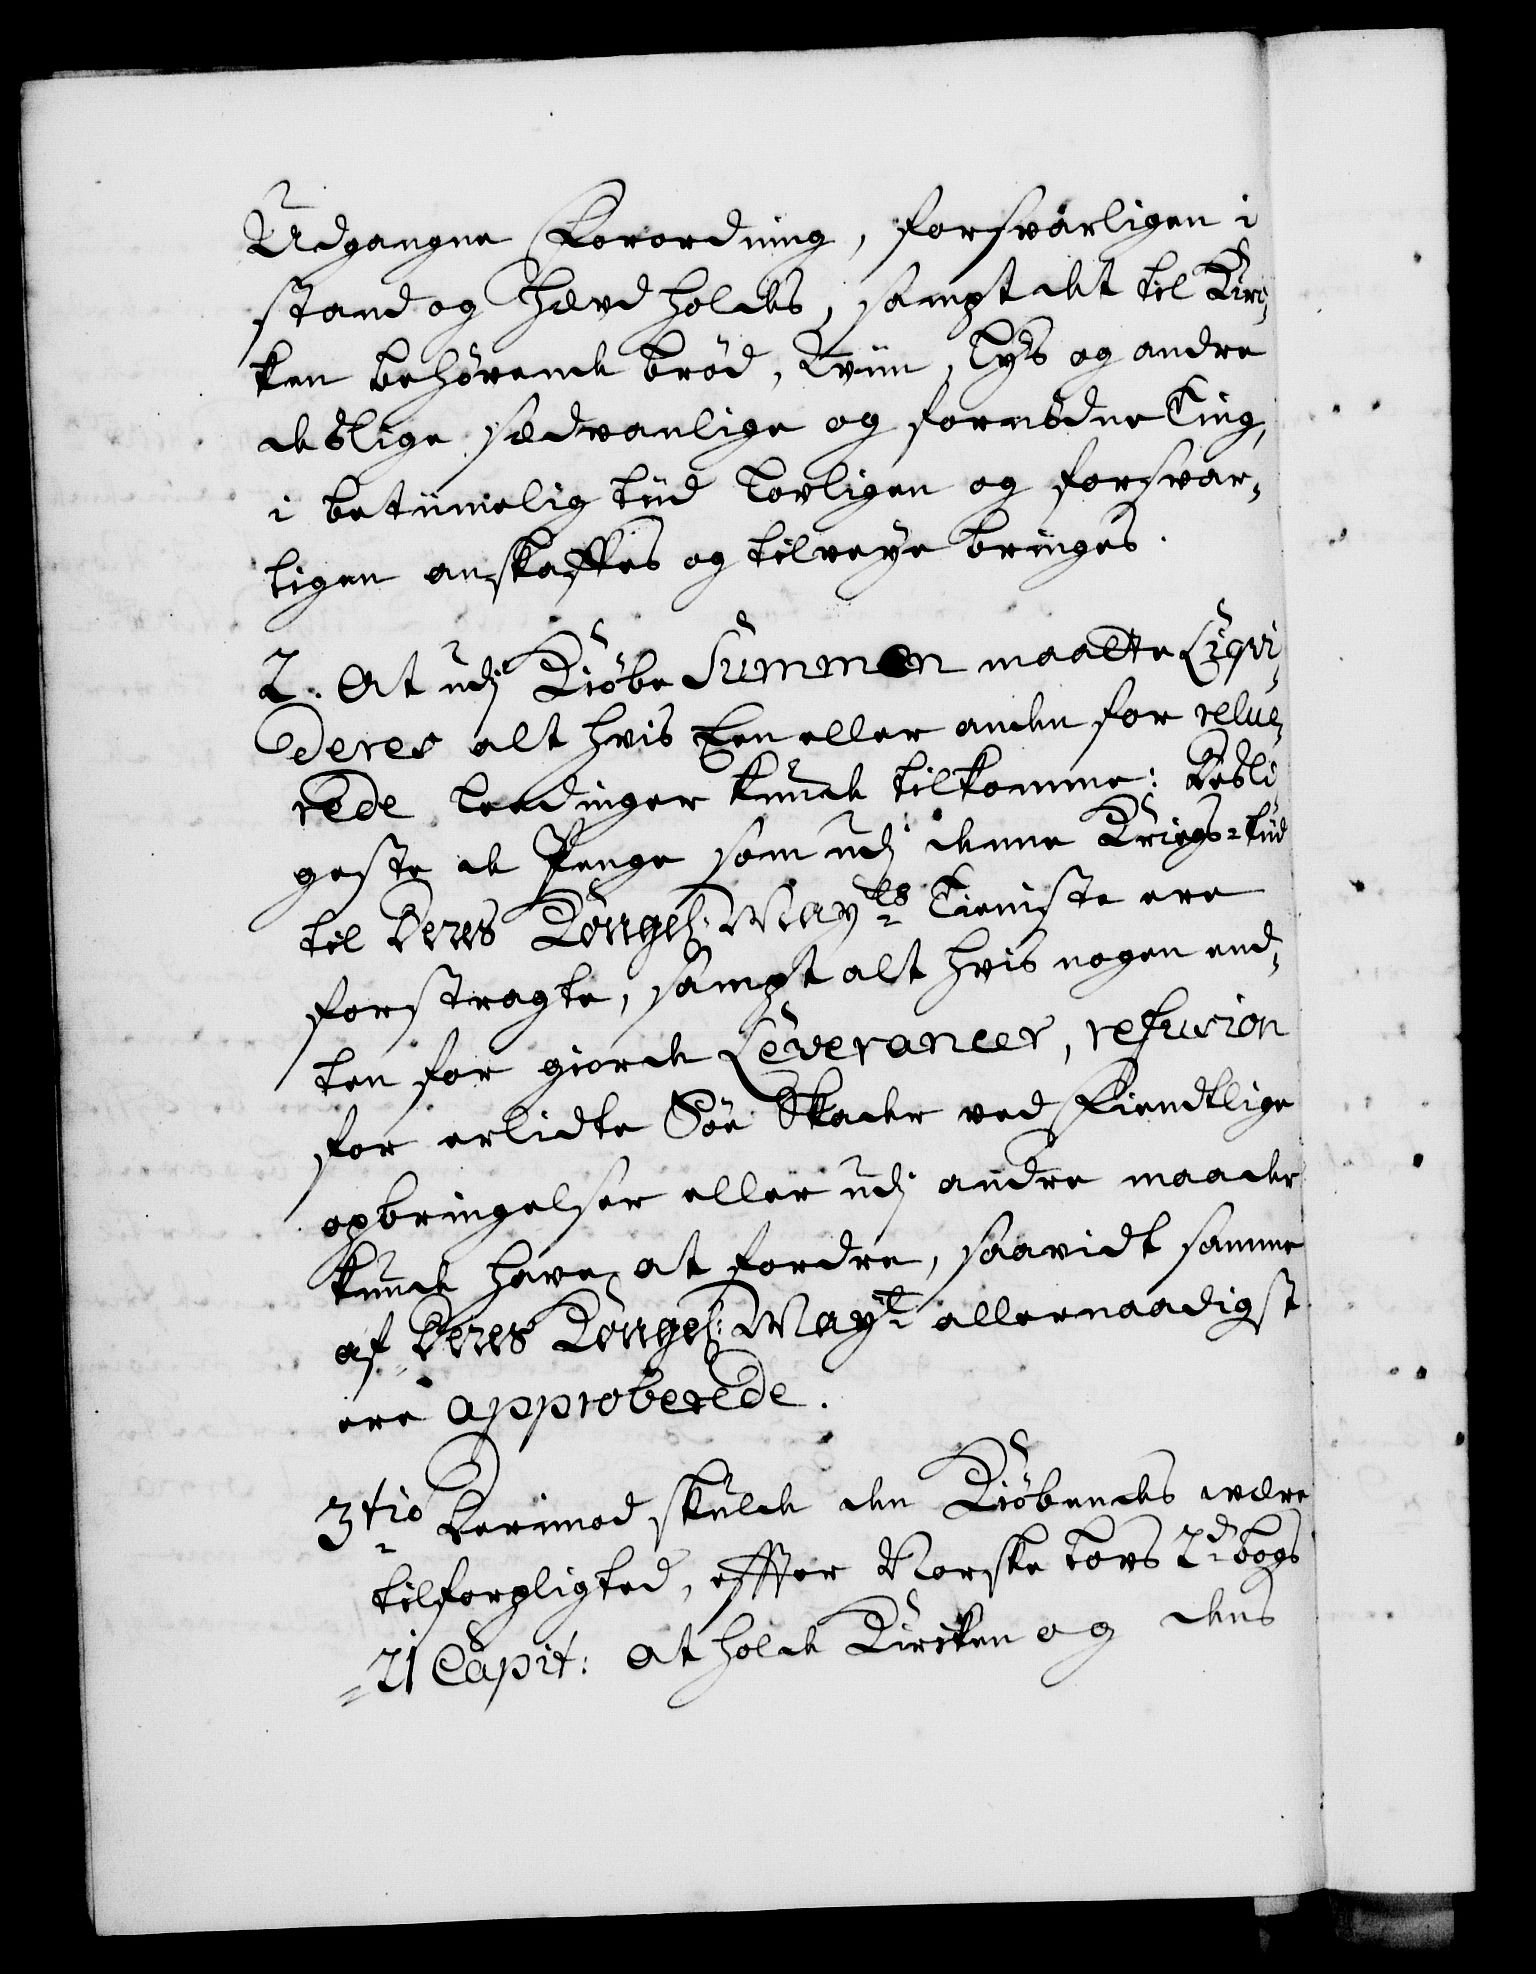 Udgangne Forordning, forsvarligen i
stand og Hævd holdes, sampt det til Kirc¬
ken behørende brød, Wiin, Lys og andre
deslige sædvanlige og fornødne Ting,
i betiimelig tiid lovligen og forsvar¬
ligen anskaffes og tilveye bringes.
2. At udj Kiøbe Summen maatte Liqvi¬
deres alt hvis Een eller anden for relue¬
rede Leedinger kunde tilkomme: Desli¬
geste de Penge som udj denne Kriegs-tiid
til Deres Kongel: May:ts Tieniste ere
forstragte, sampt alt hvis nogen end¬
ten for giorde Leverancer, refusion
for erlidte Søe Skader ved Fiendtlige
opbringelser eller udj andre maader
kunde have at fordre, saavidt samme
af Deres Kongel: May:t allernaadigst
ere approberede.
3tio Derimod skulde den Kiøbendes være
tilforpligted, effter Norske Lovs 2d bogs
21 Capit: At holde Kircken og dens